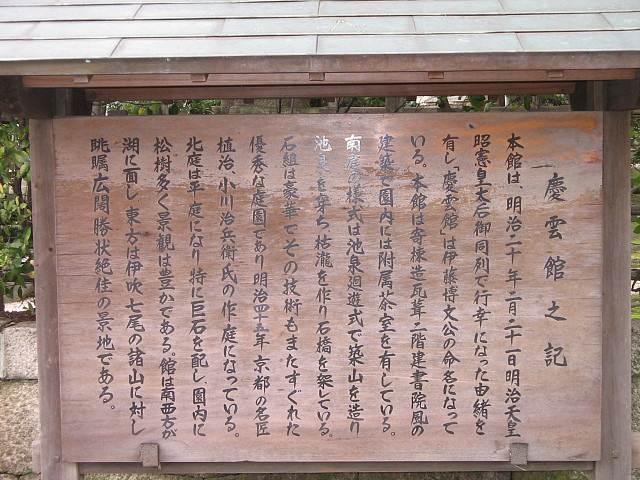 慶雲館之記
本館は、明治二十年二月二十一日明治天皇
昭憲皇太后御同列で行幸になった由緒を
有し、慶雲館は伊藤博文公の命名になって
いる。本館は寄棟造瓦葺二階建書院風の
建築で園内には附属茶室を有している。
南庭の様式は池泉廻遊式で築山を造り
池泉を穿ち枯瀧を作り石橋を架している。
石組は豪華でその技術もまたすぐれた
優秀な庭園であり明治四十五年京都の名匠
植治、小川治兵衛氏の作庭になっている。
北庭は平庭になり特に巨石を配し園内に
松樹多く景観は豊かである。館は南西方が
湖に面し東方は伊吹七尾の諸山に対し
眺瞩広闊勝状絶佳の景地である。